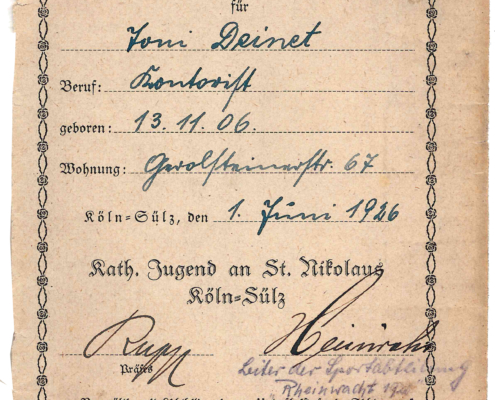 für
Toni Deinet
Beruf: Kontorist
geboren: 13.11.06.
Wohnung: Gerolsteinerstr. 67
Köln-Sülz, den 1. Juni 1926
Kath. Jugend an St. Nikolaus
Köln-Sülz
Rupp Heinrichs
Präses Leiter der Sportabteilung
Rheinwacht